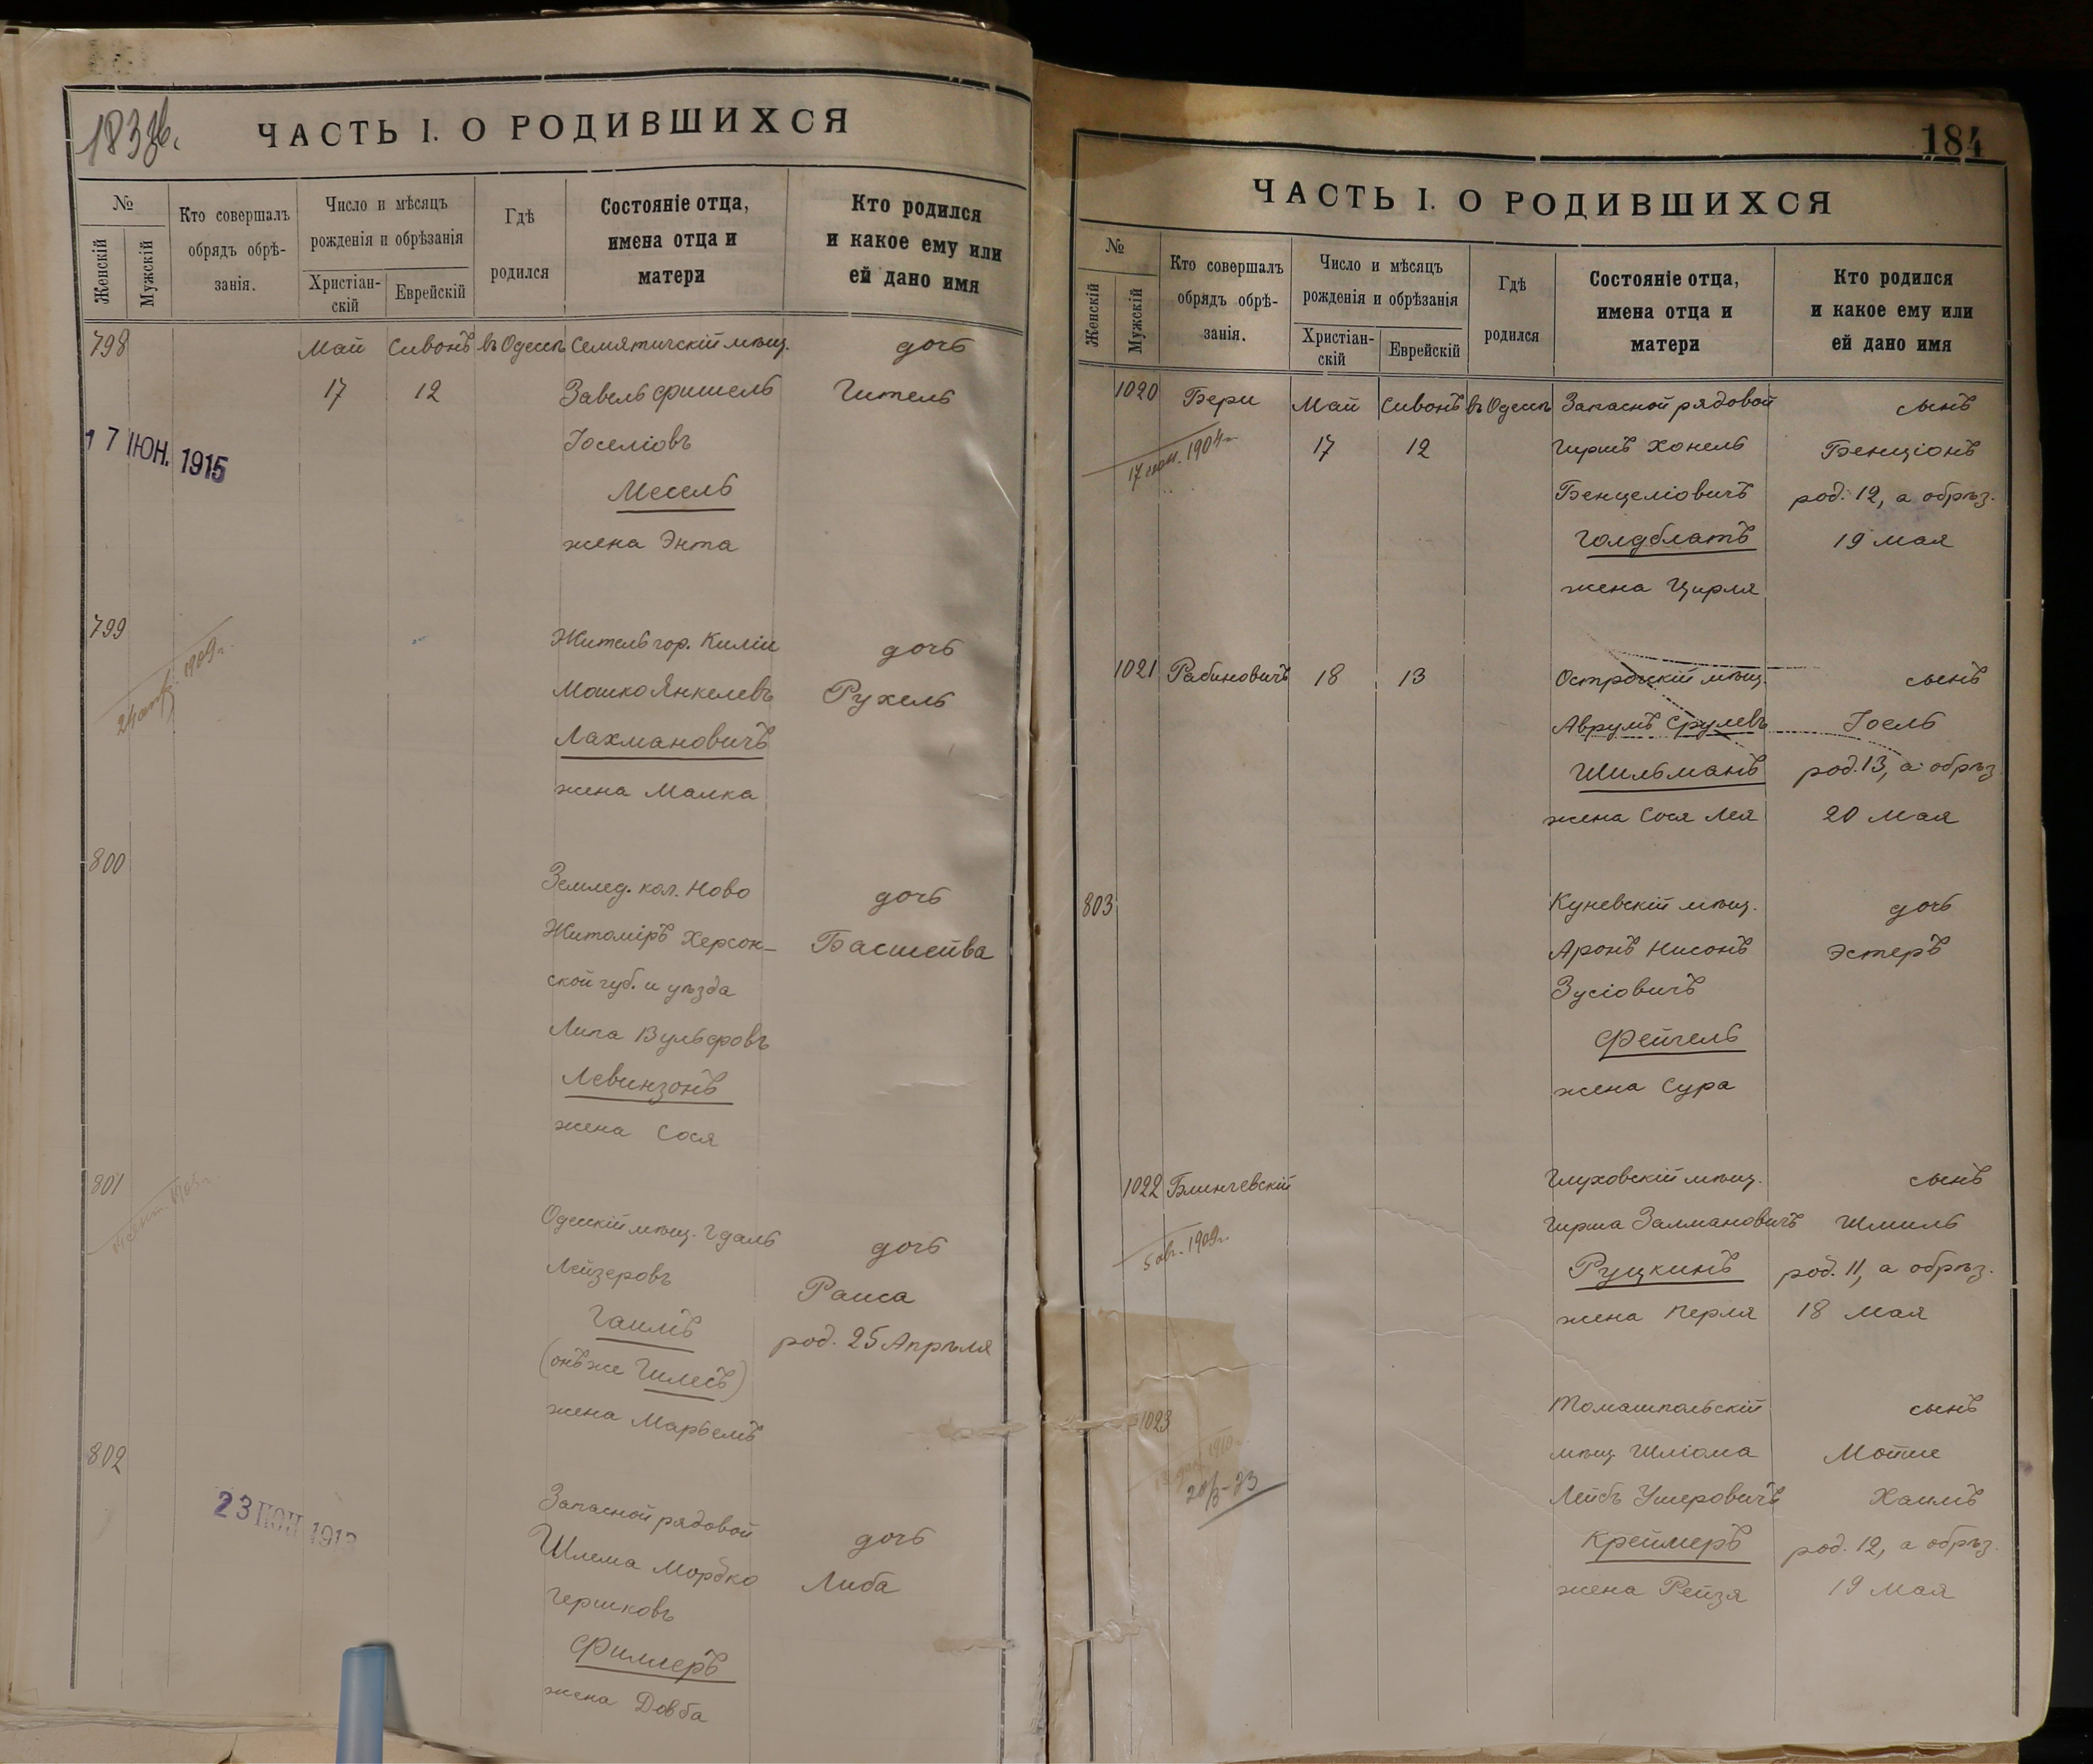 183 об.
ЧАСТЬ I. О РОДИВШИХСЯ
№
Женскій
Мужскій
Кто совершалъ
обрядъ обрѣ-
занія.
Число и мѣсяцъ
рожденія и обрѣзанія
Христіан-
скій
Еврейскій
Гдѣ
родился
Состояніе отца,
имена отца и
матери
Кто родился
и какое ему или
ей дано имя
798 Май Сивонъ въ Одессѣ Семятичскій мѣщ. дочь
17 12 Завель Фишель Гитель
17 ІЮН. 1915
Іоселіовъ
Месель
жена Энта
799 Житель гор. Киліи дочь
1909 г.
Мошко Янкелевъ Рухель
Лахмановичъ
жена Малка
800 Землед. кол. Ново дочь
Житоміръ Херсон- Басшейва
ской губ. и уѣзда
Липа Вульфовъ
Левинзонъ
жена Сося
801 Одесскій мѣщ. Гдаль дочь
Лейзеровъ Раиса
Гаимъ род. 25 Апрѣля
(онъ же Гилесъ)
жена Марьемъ
802 Запасной рядовой дочь
23 1913
Шлема Мордко Либа
Гершковъ
Филлеръ
жена Довба
184
ЧАСТЬ I. О РОДИВШИХСЯ
№
Женскій
Мужскій
Кто совершалъ
обрядъ обрѣ-
занія.
Число и мѣсяцъ
рожденія и обрѣзанія
Христіан-
скій
Еврейскій
Гдѣ
родился
Состояніе отца,
имена отца и
матери
Кто родился
и какое ему или
ей дано имя
1020 Бери Май Сивонъ въ Одессѣ Запасной рядовой сынъ
17 1904 г. 17 12 Гиршъ Хонель Бенціонъ
Бенцеліовичъ род. 12, а обрѣз.
Голдблатъ 19 мая
жена Цирля
1021 Рабиновичъ 18 13 Острожскій мѣщ. сынъ
Аврумъ Срулевъ Іоель
Шильманъ род. 13, а обрѣз.
жена Сося Лея 20 Мая
803 Куневскій мѣщ. дочь
Аронъ Нисонъ Эстеръ
Зусіовичъ
Фейгель
жена Сура
1022 Блинчевскій Глуховскій мѣщ. сынъ
5 авг. 1909 г. Гирша Залмановичъ Шмиль
Руцкинъ род. 11, а обрѣз.
жена Перля 18 Мая
1023 Томашпольскій сынъ
1910 г. мѣщ. Шліома Мотие
20/3-23 Лейбъ Ушеровичъ Хаимъ
Креймеръ род. 12, а обрѣз.
жена Рейзя 19 Мая